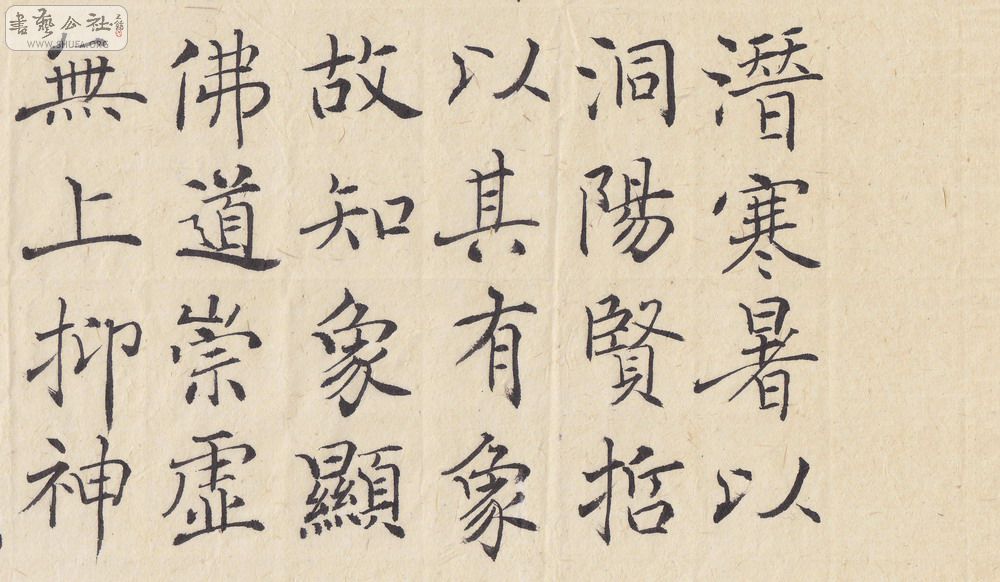 潛寒暑以
洞陽賢哲
以其有象
故知象顯
佛道崇虛
無上抑神
書藝公社
WWW.SHUFA.ORG